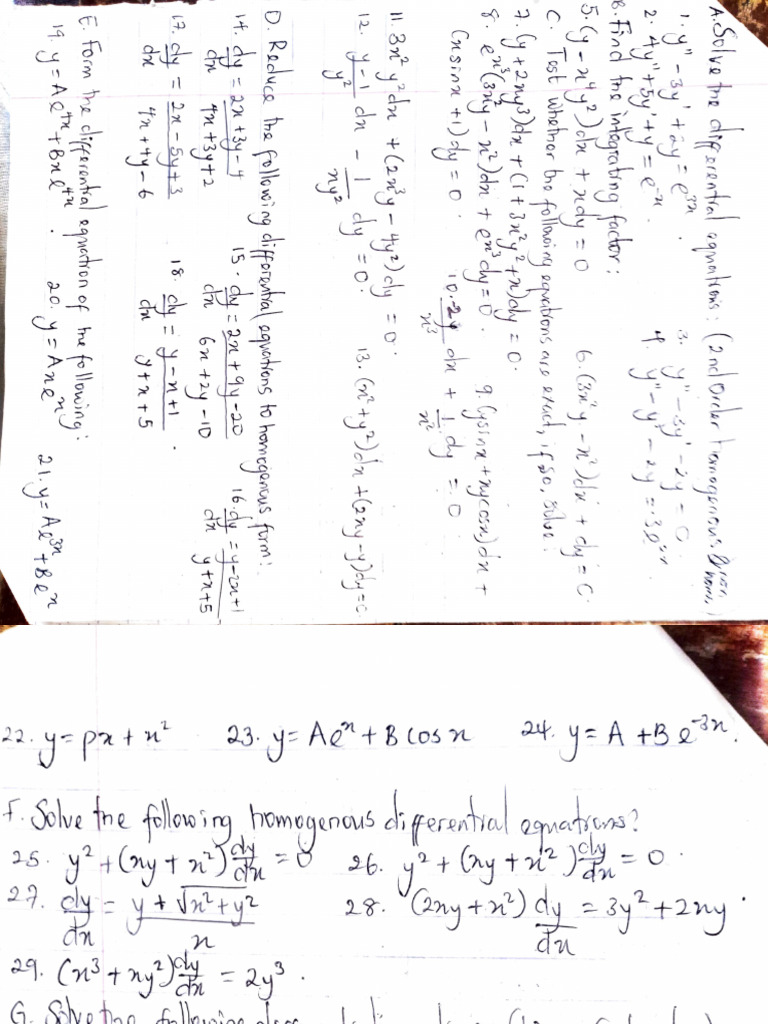 A. Solve the differential equations: (2nd Order homogenous
1. y'' - 3y' + 2y = e^{3x}.
3. y'' - 3y' - 2y = 0.
2. 4y'' + 5y' + y = e^{-x}.
4. y'' - y' - 2y = 3e^{2x}
B. Find the integrating factor:
5. (y - x^4y^2)dx + xdy = 0
6. (3x^2y - x^2)dx + dy = 0.
C. Test whether the following equations are exact, if so, solve:
7. (y + 2xy^3)dx + (1 + 3x^2y^2 + x)dy = 0.
8. e^{x^3}(3x^2y - x^2)dx + e^{x^3}dy = 0.
9. (ysinx + xycosx)dx +
(xsinx + 1)dy = 0.
10. -2y/x^3 dx + 1/x^2 dy = 0
11. 3x^2y^2dx + (2x^3y - 4y^2)dy = 0.
12. y-1/y^2 dx - 1/xy^2 dy = 0.
13. (x^2 + y^2)dx + (2xy - y)dy = 0
D. Reduce the following differential equations to homogenous form:
14. dy/dx = 2x + 3y - 4/4x + 3y + 2
15. dy/dx = 2x + 9y - 20/6x + 2y - 10
16. dy/dx = y - 2x + 1/y + x + 5
17. dy/dx = 2x - 5y + 3/4x + 4y - 6
18. dy/dx = y - x + 1/y + x + 5.
E. Form the differential equation of the following:
19. y = Ae^{4x} + Bxe^{4x}.
20. y = Axe^x
21. y = Ae^{3x} + Be^x
22. y = px + x^2
23. y = Ae^x + B cos x
24. y = A + Be^{-3x}.
F. Solve the following homogenous differential equations?
25. y^2 + (xy + x^2)dy/dx = 0
26. y^2 + (xy + x^2)dy/dx = 0.
27. dy/dx = y + √x^2 + y^2/x
28. (2xy + x^2)dy/dx = 3y^2 + 2xy.
29. (x^3 + xy^2)dy/dx = 2y^3.
G. Solve the following